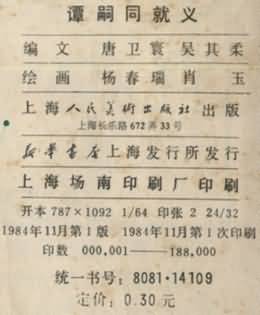 谭嗣同就义
编文 唐卫寰 吴其柔
绘画 杨春瑞 肖玉
上海人民美术出版社出版
上海长乐路 672 弄 33 号
新华书店上海发行所发行
上海场南印刷厂印刷
开本 787×1092 1/64 印张 2 24/32
1984年11月第1版 1984年11月第1次印刷
印数 000,001——188,000
统一书号：8081·14109
定价：0.30 元